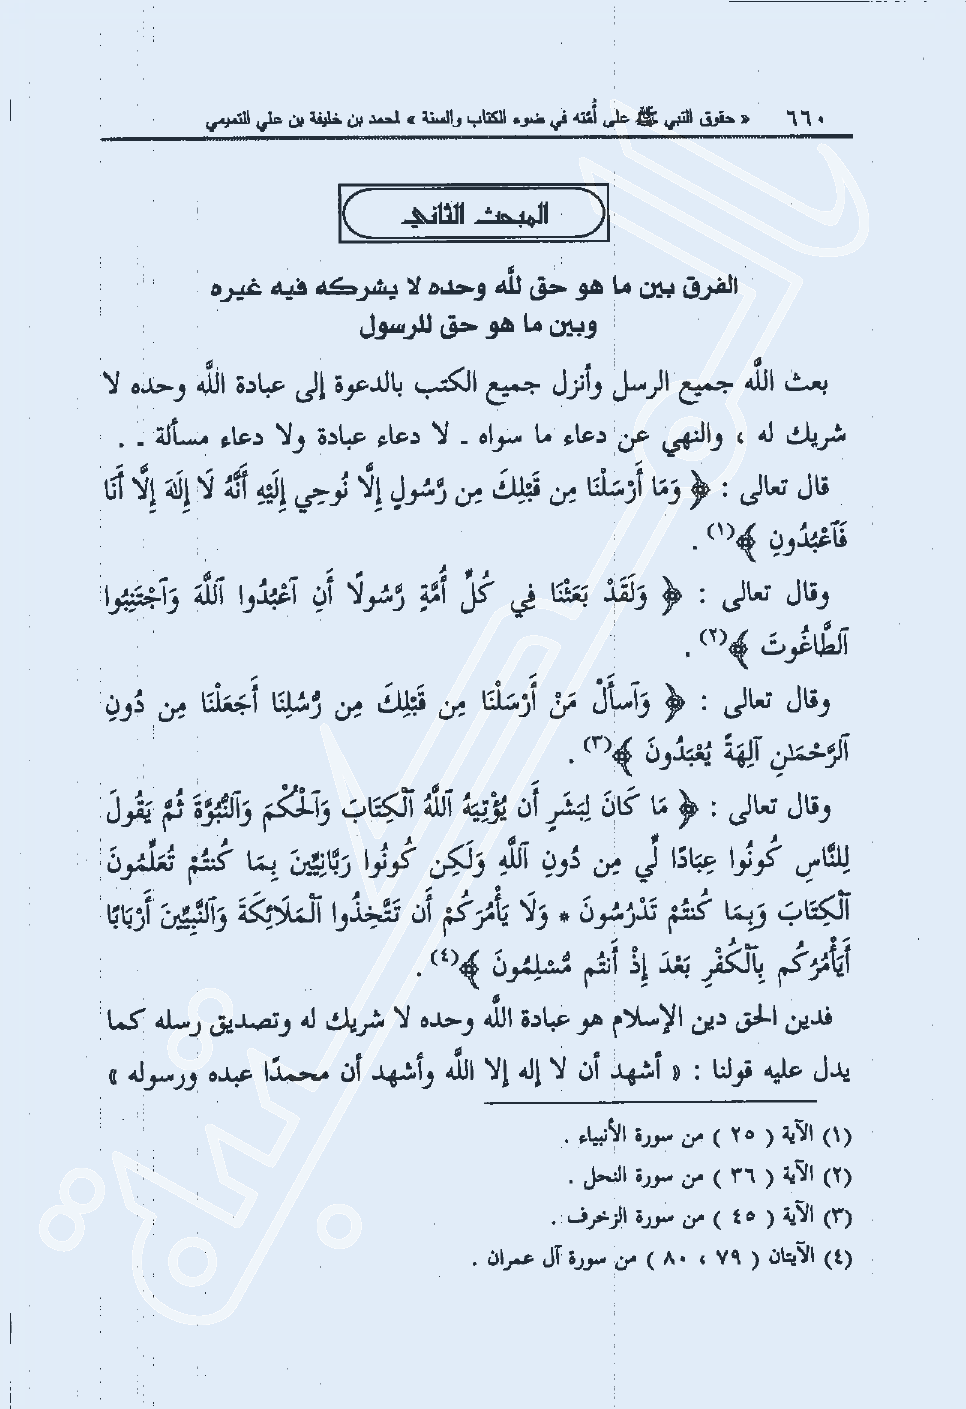 ٦٦٠ « حقوق النبي ﷺ على أُمَّته في ضوء الكتاب والسنة » لمحمد بن خليفة بن علي التميمي
المبحث الثاني
الفرق بين ما هو حق للَّه وحده لا يشركه فيه غيره
وبين ما هو حق للرسول
بعث اللَّه جميع الرسل وأنزل جميع الكتب بالدعوة إلى عبادة اللَّه وحده لا
شريك له ، والنهي عن دعاء ما سواه ـ لا دعاء عبادة ولا دعاء مسألة ـ .
قال تعالى : ﴿ وَمَا أَرْسَلْنَا مِن قَبْلِكَ مِن رَّسُولٍ إِلَّا نُوحِي إِلَيْهِ أَنَّهُ لَا إِلَٰهَ إِلَّا أَنَا
فَٱعْبُدُونِ ﴾(١) .
وقال تعالى : ﴿ وَلَقَدْ بَعَثْنَا فِي كُلِّ أُمَّةٍ رَّسُولًا أَنِ ٱعْبُدُوا ٱللَّهَ وَٱجْتَنِبُوا
ٱلطَّاغُوتَ ﴾(٢) .
وقال تعالى : ﴿ وَٱسأَلْ مَنْ أَرْسَلْنَا مِن قَبْلِكَ مِن رُّسُلِنَا أَجَعَلْنَا مِن دُونِ
ٱلرَّحْمَٰنِ آلِهَةً يُعْبَدُونَ ﴾(٣) .
وقال تعالى : ﴿ مَا كَانَ لِبَشَرٍ أَن يُؤْتِيَهُ ٱللَّهُ ٱلْكِتَابَ وَٱلْحُكْمَ وَٱلنُّبُوَّةَ ثُمَّ يَقُولَ
لِلنَّاسِ كُونُوا عِبَادًا لِّي مِن دُونِ ٱللَّهِ وَلَكِن كُونُوا رَبَّانِيِّينَ بِمَا كُنتُمْ تُعَلِّمُونَ
ٱلْكِتَابَ وَبِمَا كُنتُمْ تَدْرُسُونَ * وَلَا يَأْمُرَكُمْ أَن تَتَّخِذُوا ٱلْمَلَائِكَةَ وَٱلنَّبِيِّينَ أَرْبَابًا
أَيَأْمُرُكُم بِٱلْكُفْرِ بَعْدَ إِذْ أَنتُم مُّسْلِمُونَ ﴾(٤) .
فدين الحق دين الإسلام هو عبادة اللَّه وحده لا شريك له وتصديق رسله كما
يدل عليه قولنا : « أشهد أن لا إله إلا اللَّه وأشهد أن محمدًا عبده ورسوله »
(١) الآية ( ٢٥ ) من سورة الأنبياء .
(٢) الآية ( ٣٦ ) من سورة النحل .
(٣) الآية ( ٤٥ ) من سورة الزخرف .
(٤) الآيتان ( ٧٩ ، ٨٠ ) من سورة آل عمران .